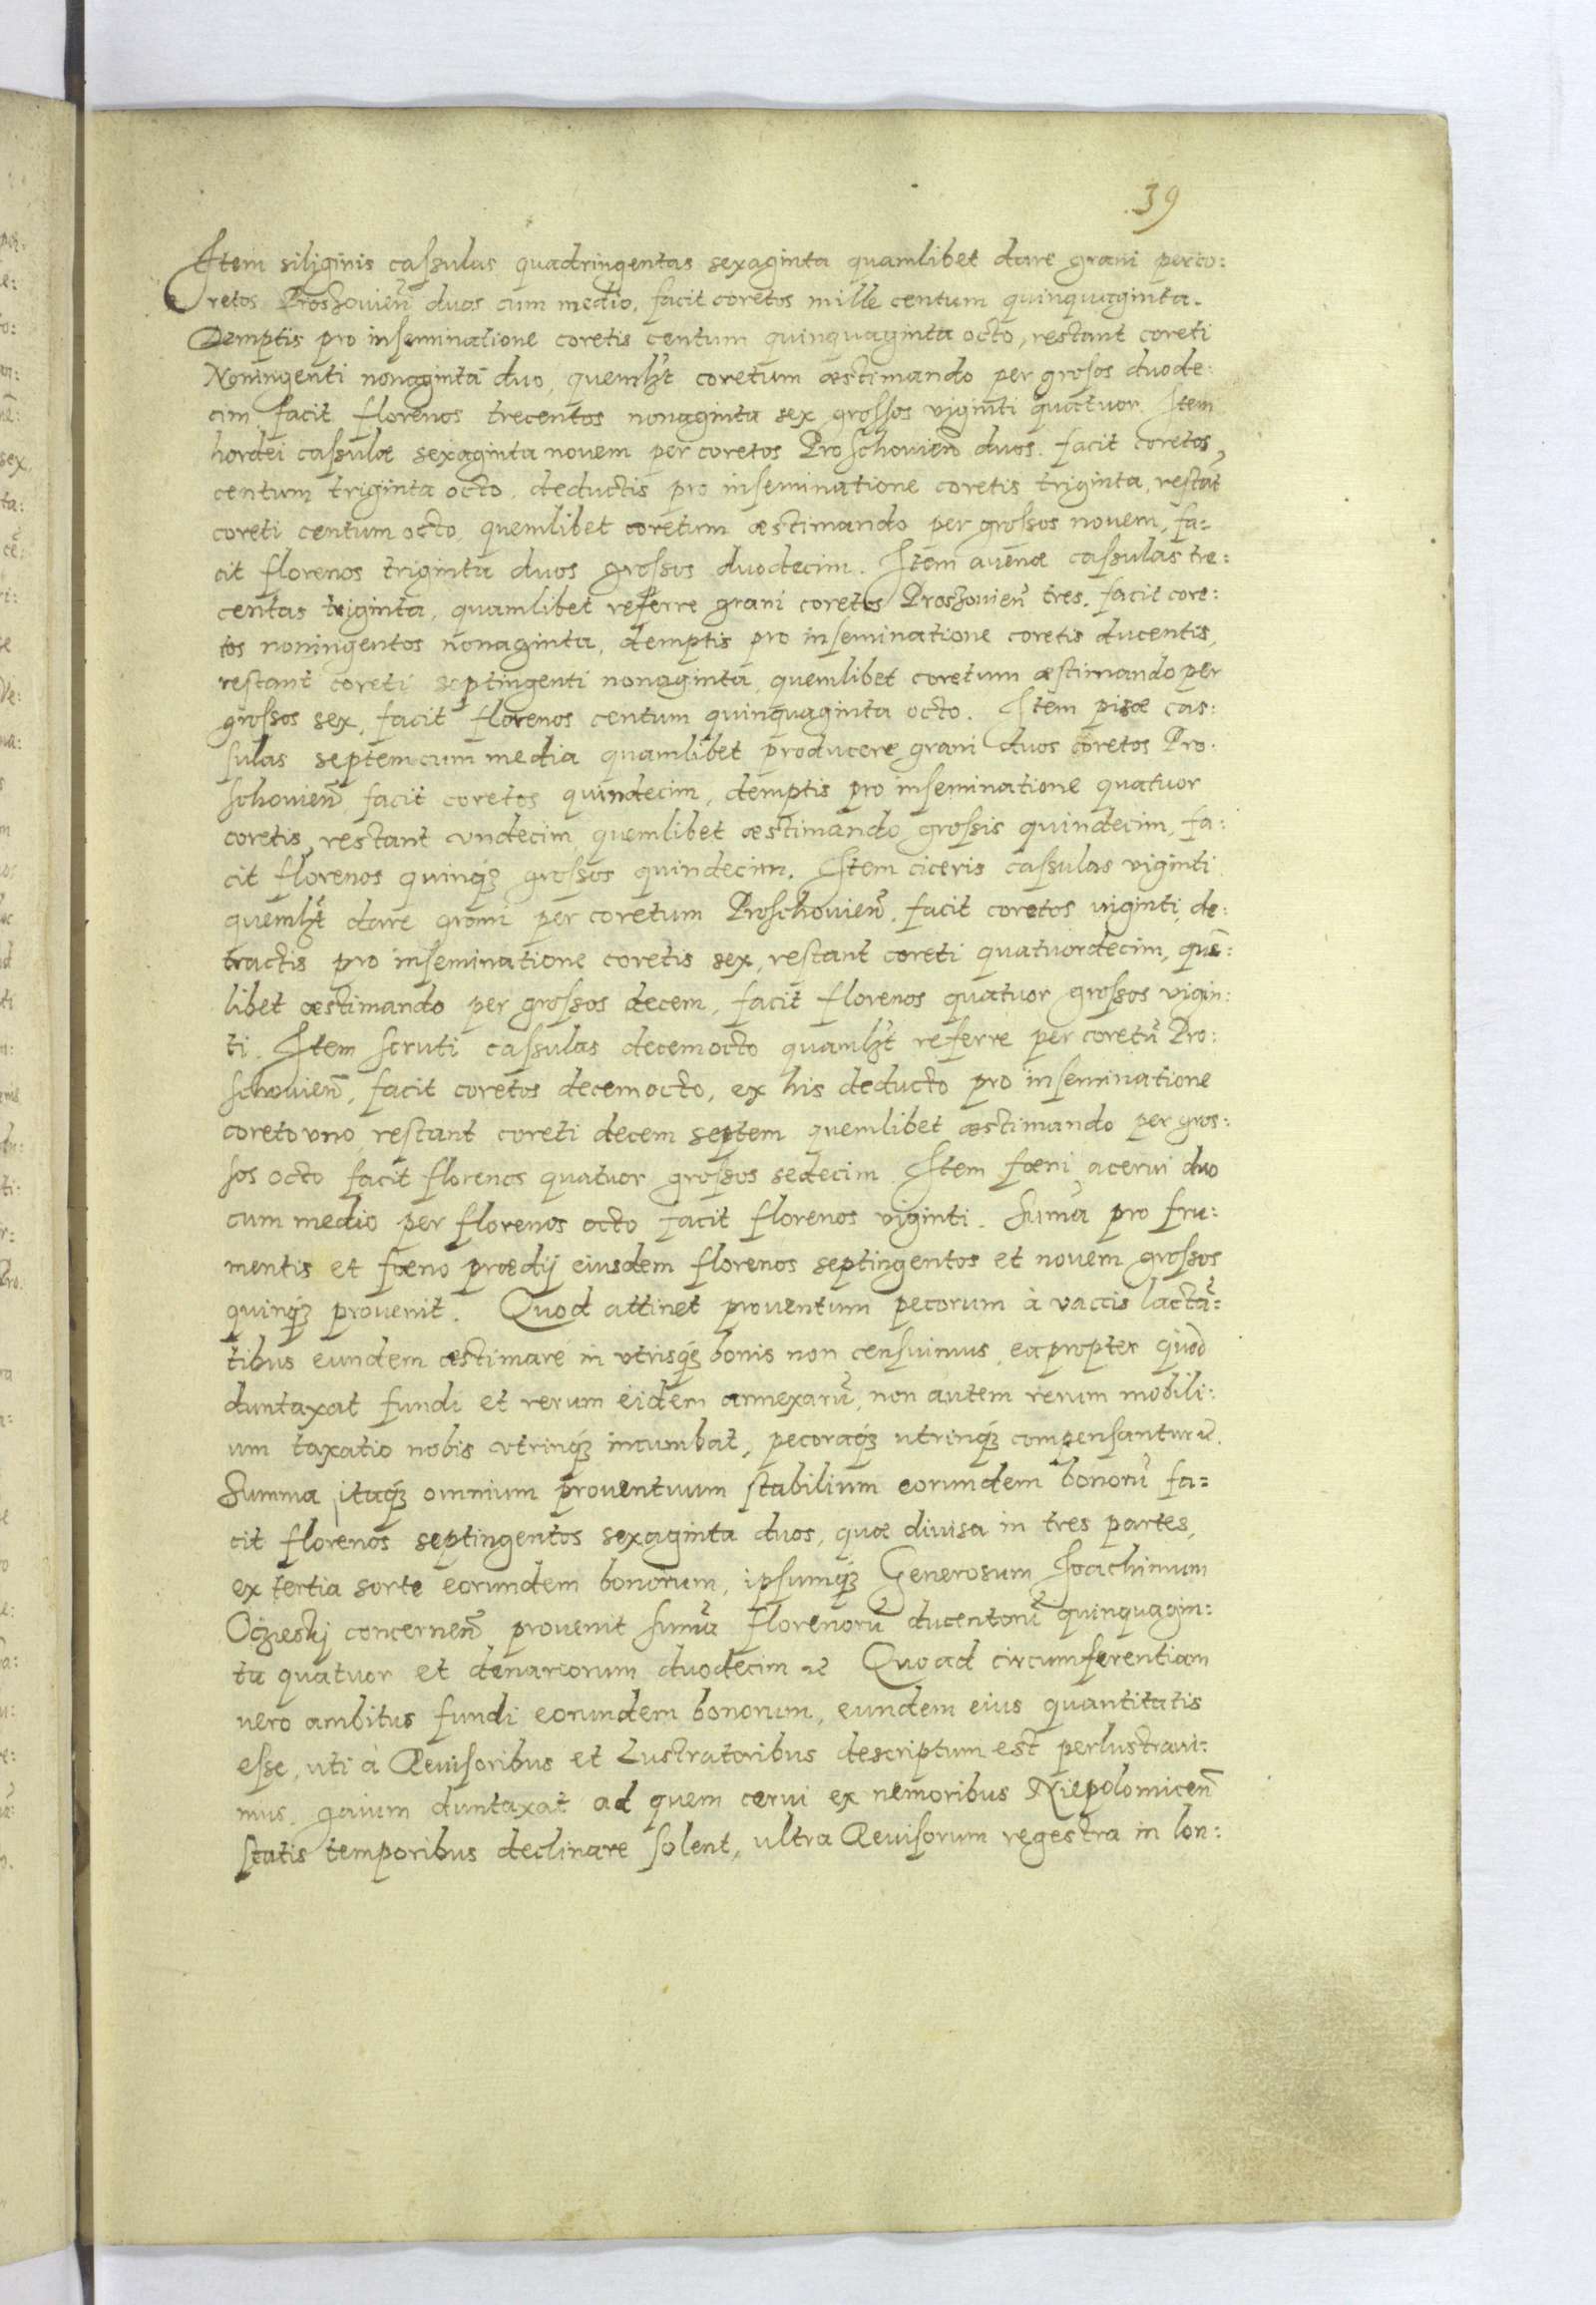 39
Item siliginis cassulas quadringentas sexaginta quamlibet dare grani per co:
retos Proszouien̄ duos cum medio, facit coretos mille centum quinquaginta.
Demptis pro inseminatione coretis centum quinquaginta octo, restant coreti
Noningenti nonaginta duo, quemlꝫt coretum æstimando per grosos duode:
cim, facit florenos trecentos nonaginta sex grossos viginti quatuor. Item
hordei cassulæ sexaginta novem per coretos Proschouien̄ duos. facit coretos,
centum triginta octo, deductis pro inseminatione coretis triginta, restāt
coreti centum octo, quemlibet coretum æstimando per grossos novem, fa:
cit florenos triginta duos grossos duodecim. Item auenæ cassulas tre:
centas triginta, quamlibet referre grani coretos Proszouien̄ tres. facit core:
tos noningentos nonaginta, demptis pro inseminatione coretis ducentis,
restant coreti septingenti nonaginta, quemlibet coretum æstimando per
grossos sex, facit florenos centum quinquaginta octo. Item pisæ cas:
sulas septem cum media quamlibet producere grani duos coretos Pro:
schouien̄, facit coretos quindecim, demptis pro inseminatione quatuor
coretis, restant vndecim, quemlibet æstimando grossis quindecim, fa:
cit florenos quinqꝫ grossos quindecim. Item ciceris cassulas viginti
quemlꝫt dare grani per coretum Proschouien̄, facit coretos viginti, de:
tractis pro inseminatione coretis sex, restant coreti quatuordecim, quē:
libet æstimando per grossos decem, facit florenos quatuor grossos vigin:
ti. Item scruti cassulas decemocto quamlꝫt referre per coretū Pro:
schouien̄, facit coretos decemocto, ex his deducto pro inseminatione
coreto vno, restant coreti decem septem quemlibet æstimando per gros:
sos octo facit florenos quatuor grossos sedecim. Item fæni acerui duo
cum medio per florenos octo facit florenos viginti. Sum̄a pro fru:
mentis et fæno prædij eiusdem florenos septingentos et novem grossos
quinqꝫ provenit. Quod attinet proventum pecorum à vaccis lactā:
tibus eundem æstimare in vtrisqꝫ bonis non censuimus, eapropter quod
duntaxat fundi et rerum eidem annexarū, non autem rerum mobili:
um taxatio nobis vtrinqꝫ incumbat, pecoraqꝫ utrinqꝫ compensantur.
Summa itaqꝫ omnium proventuum stabilium eorundem bonorū fa:
cit florenos septingentos sexaginta duos, quæ diuisa in tres partes,
ex tertia sorte eorundem bonorum, ipsumqꝫ Generosum Joachimum
Oczieskj concernen̄ provenit sum̄a florenorū ducentorū quinquagin:
ta quatuor et denariorum duodecim Quo ad circumferentiam
vero ambitus fundi eorundem bonorum, eundem eius quantitatis
esse, uti à Reuisoribus et Lustratoribus descriptum est perlustraui:
mus. gaium duntaxat ad quem cerui ex nemoribus Niepolomicen̄
statis temporibus declinare solent, ultra Reuisorum regestra in lon: